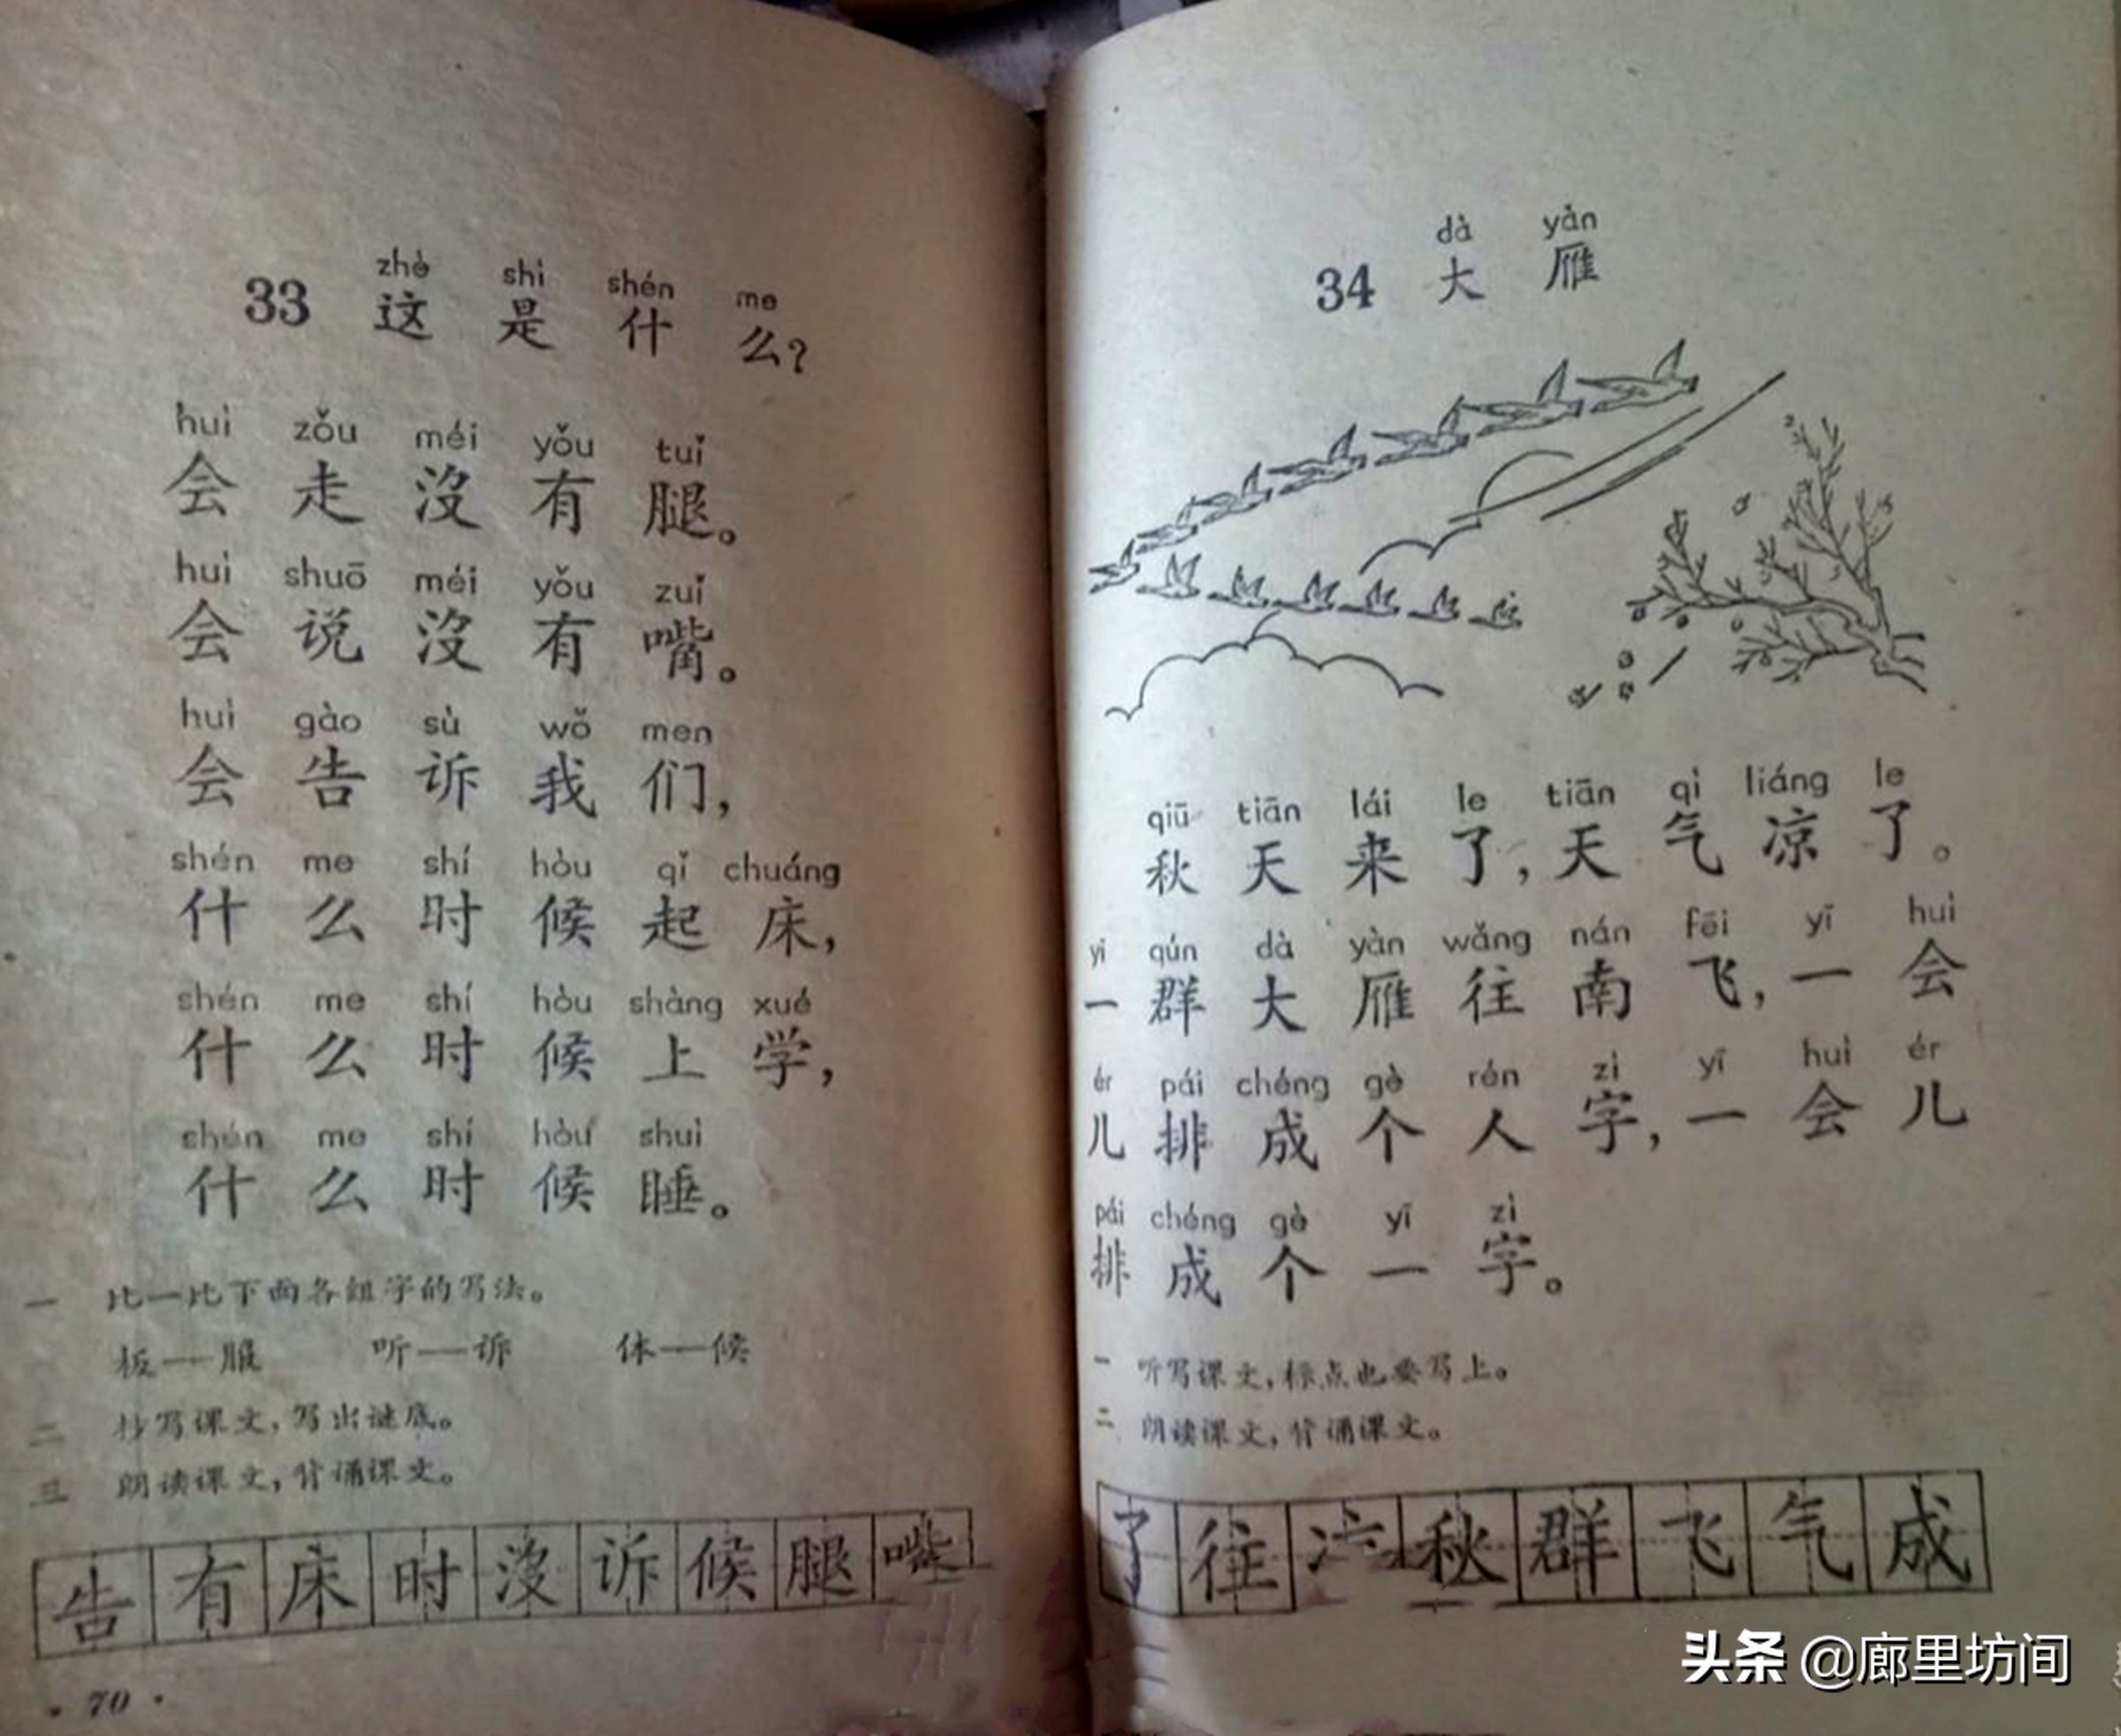 zhè shì shén me
33 这是什么？
huì zǒu méi yǒu tuǐ
会走没有腿。
huì shuō méi yǒu zuǐ
会说没有嘴。
huì gào sù wǒ men
会告诉我们，
shén me shí hòu qǐ chuáng
什么时候起床，
shén me shí hòu shàng xué
什么时候上学，
shén me shí hòu shuì
什么时候睡。
一 比一比下面各组字的写法。
板——服 听——诉 休——候
二 抄写课文，写出谜底。
三 朗读课文，背诵课文。
告有床时没诉候腿嘴
·70·
dà yàn
34 大雁
qiū tiān lái le tiān qì liáng le
秋天来了，天气凉了。
yī qún dà yàn wǎng nán fēi yī huì
一群大雁往南飞，一会
ér pái chéng gè rén zì yī huì ér
儿排成个人字，一会儿
pái chéng gè yī zì
排成个一字。
一 听写课文，标点也要写上。
二 朗读课文，背诵课文。
了往 秋群飞气成
头条 @廊里坊间